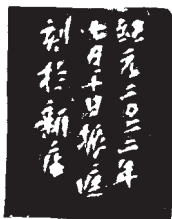 紀元二〇二三年
七月十日振庭
刻於新店